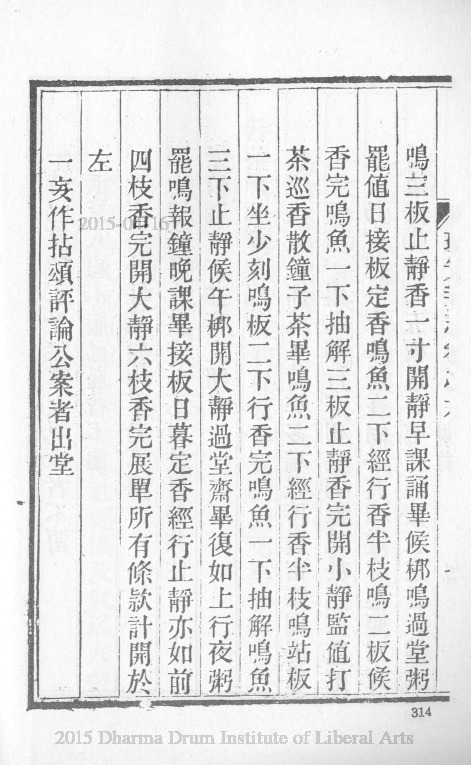 鳴三板止靜香一寸開靜早課誦畢候梆鳴過堂粥
罷值日接板定香鳴魚二下經行香半枝鳴二板候
香完鳴魚一下抽解三板止靜香完開小靜監值打
茶巡香散鐘子茶畢鳴魚二下經行香半枝鳴站板
一下坐少刻鳴板二下行香完鳴魚一下抽解鳴魚
三下止靜候午梆開大靜過堂齋畢復如上行夜粥
罷鳴報鐘晚課畢接板日暮定香經行止靜亦如前
四枝香完開大靜六枝香完展單所有條款計開於
左
一亥作拈頌評論公案者出堂
314
2015 Dharma Drum Institute of Liberal Arts